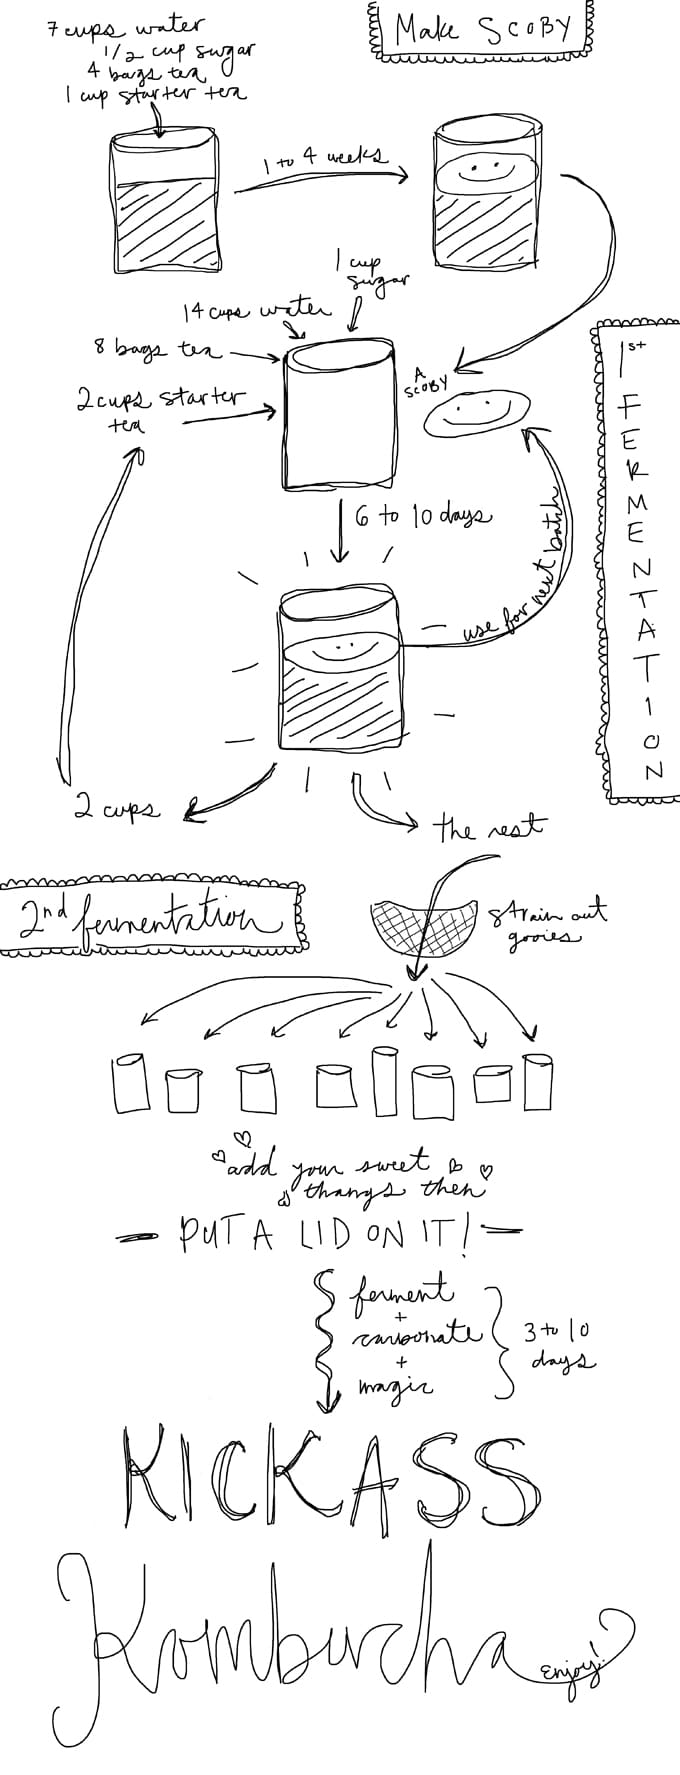 7 cups water
1/2 cup sugar
4 bags tea
1 cup starter tea
Make SCOBY
1 to 4 weeks
1 cup
sugar
14 cups water
8 bags tea
2 cups starter
tea
A
SCOBY
1st
FERMENTATION
6 to 10 days
use for next batch
2 cups
the rest
2nd fermentation
strain out
gooies
add your sweet
thangs then
— PUT A LID ON IT! —
ferment
+
carbonate
+
magic
3 to 10
days
KICKASS
Kombucha
Enjoy!